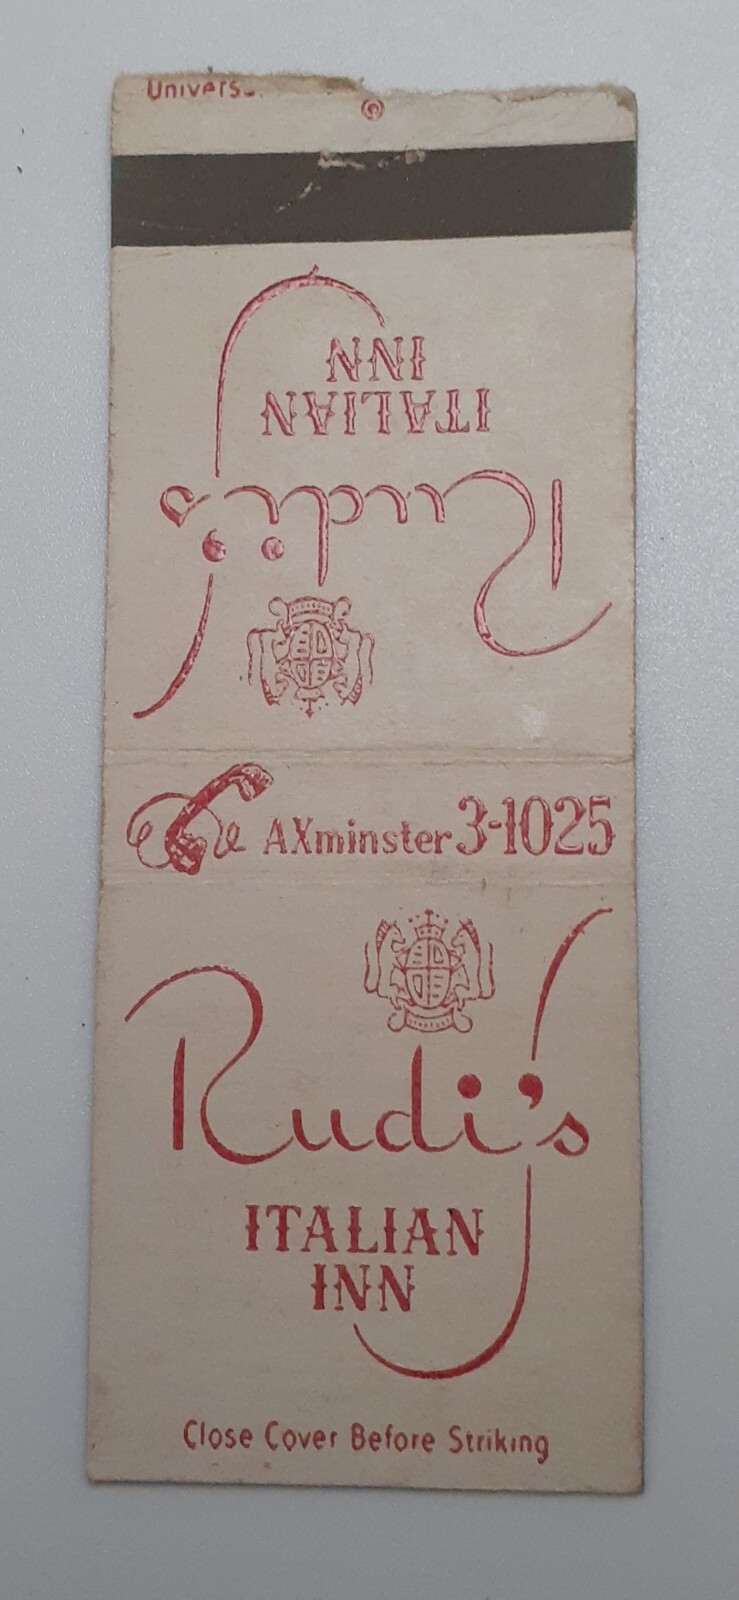 Rudi's
ITALIAN
INN
AXminster 3-1025
Rudi's
ITALIAN
INN
Close Cover Before Striking